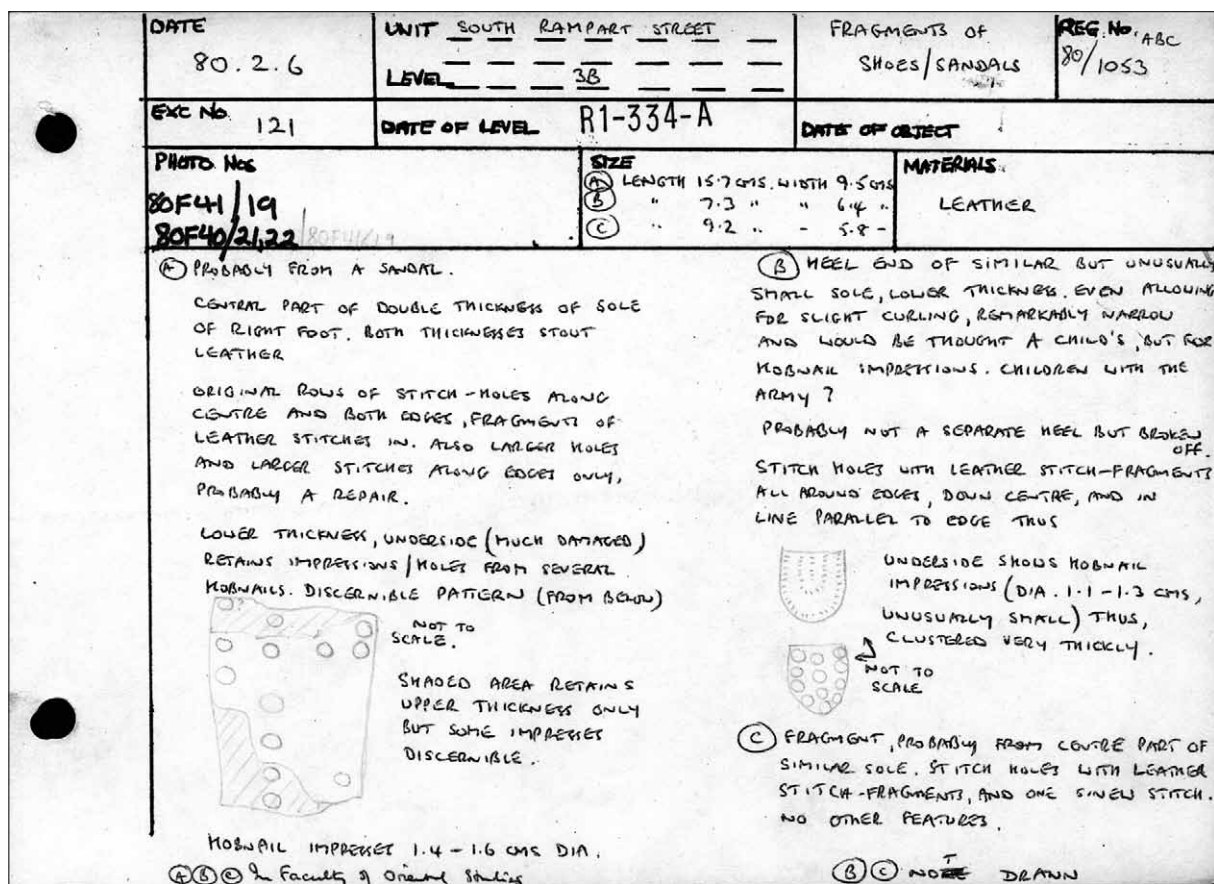 DATE
80.2.6
UNIT SOUTH RAMPART STREET
LEVEL 3B
FRAGMENTS OF
SHOES/SANDALS
REG. No. ABC
80/1053
EXC No. 121
DATE OF LEVEL R1-334-A
DATE OF OBJECT
PHOTO Nos
80F41/19
80F40/21,22 80F41/19
SIZE
A LENGTH 15.7 CMS. WIDTH 9.5 CMS
B " 7.3 " " 6.4 "
C " 9.2 " - 5.8 -
MATERIALS
LEATHER
A PROBABLY FROM A SANDAL.
CENTRAL PART OF DOUBLE THICKNESS OF SOLE
OF RIGHT FOOT. BOTH THICKNESSES STOUT
LEATHER
ORIGINAL ROWS OF STITCH-HOLES ALONG
CENTRE AND BOTH EDGES, FRAGMENTS OF
LEATHER STITCHES IN. ALSO LARGER HOLES
AND LARGER STITCHES ALONG EDGES ONLY,
PROBABLY A REPAIR.
LOWER THICKNESS, UNDERSIDE (MUCH DAMAGED)
RETAINS IMPRESSIONS/HOLES FROM SEVERAL
HOBNAILS. DISCERNIBLE PATTERN (FROM BELOW)
?
NOT TO
SCALE.
SHADED AREA RETAINS
UPPER THICKNESS ONLY
BUT SOME IMPRESSES
DISCERNIBLE.
HOBNAIL IMPRESSES 1.4 - 1.6 CMS DIA.
A B C In Faculty of Oriental Studies
B HEEL END OF SIMILAR BUT UNUSUALLY
SMALL SOLE, LOWER THICKNESS. EVEN ALLOWING
FOR SLIGHT CURLING, REMARKABLY NARROW
AND WOULD BE THOUGHT A CHILD'S, BUT FOR
HOBNAIL IMPRESSIONS. CHILDREN WITH THE
ARMY?
PROBABLY NOT A SEPARATE HEEL BUT BROKEN
OFF.
STITCH HOLES WITH LEATHER STITCH-FRAGMENTS
ALL AROUND EDGES, DOWN CENTRE, AND IN
LINE PARALLEL TO EDGE THUS
UNDERSIDE SHOWS HOBNAIL
IMPRESSIONS (DIA. 1.1 - 1.3 CMS,
UNUSUALLY SMALL) THUS,
CLUSTERED VERY THICKLY.
NOT TO
SCALE
C FRAGMENT, PROBABLY FROM CENTRE PART OF
SIMILAR SOLE. STITCH HOLES WITH LEATHER
STITCH-FRAGMENTS, AND ONE SINEW STITCH.
NO OTHER FEATURES.
B C NOT DRAWN